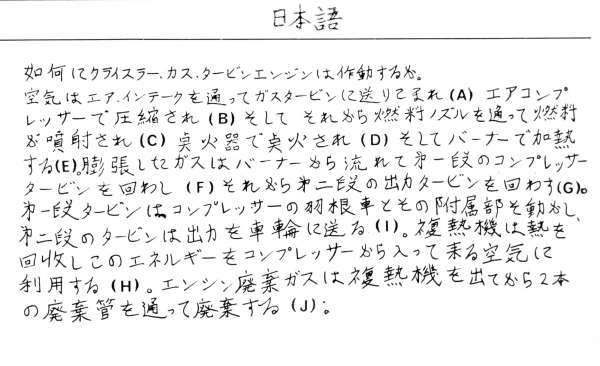 日本語
如何にクライスラー.ガス.タービンエンジンは作動するか。
空気はエア.インテークを通ってガスタービンに送りこまれ (A) エアコンプ
レッサーで圧縮され (B) そして それから燃料ノズルを通って燃料
が噴射され (C) 点火器で点火され (D) そしてバーナーで加熱
する(E)。膨張したガスはバーナーから流れて第一段のコンプレッサー
タービンを回わし (F) それから第二段の出力タービンを回わす(G)。
第一段タービンはコンプレッサーの羽根車とその附属部を動かし、
第二段のタービンは出力を車輪に送る (I)。複熱機は熱を
回収しこのエネルギーをコンプレッサーから入って来る空気に
利用する (H)。エンジン廃棄ガスは複熱機を出てから2本
の廃棄管を通って廃棄する (J)。